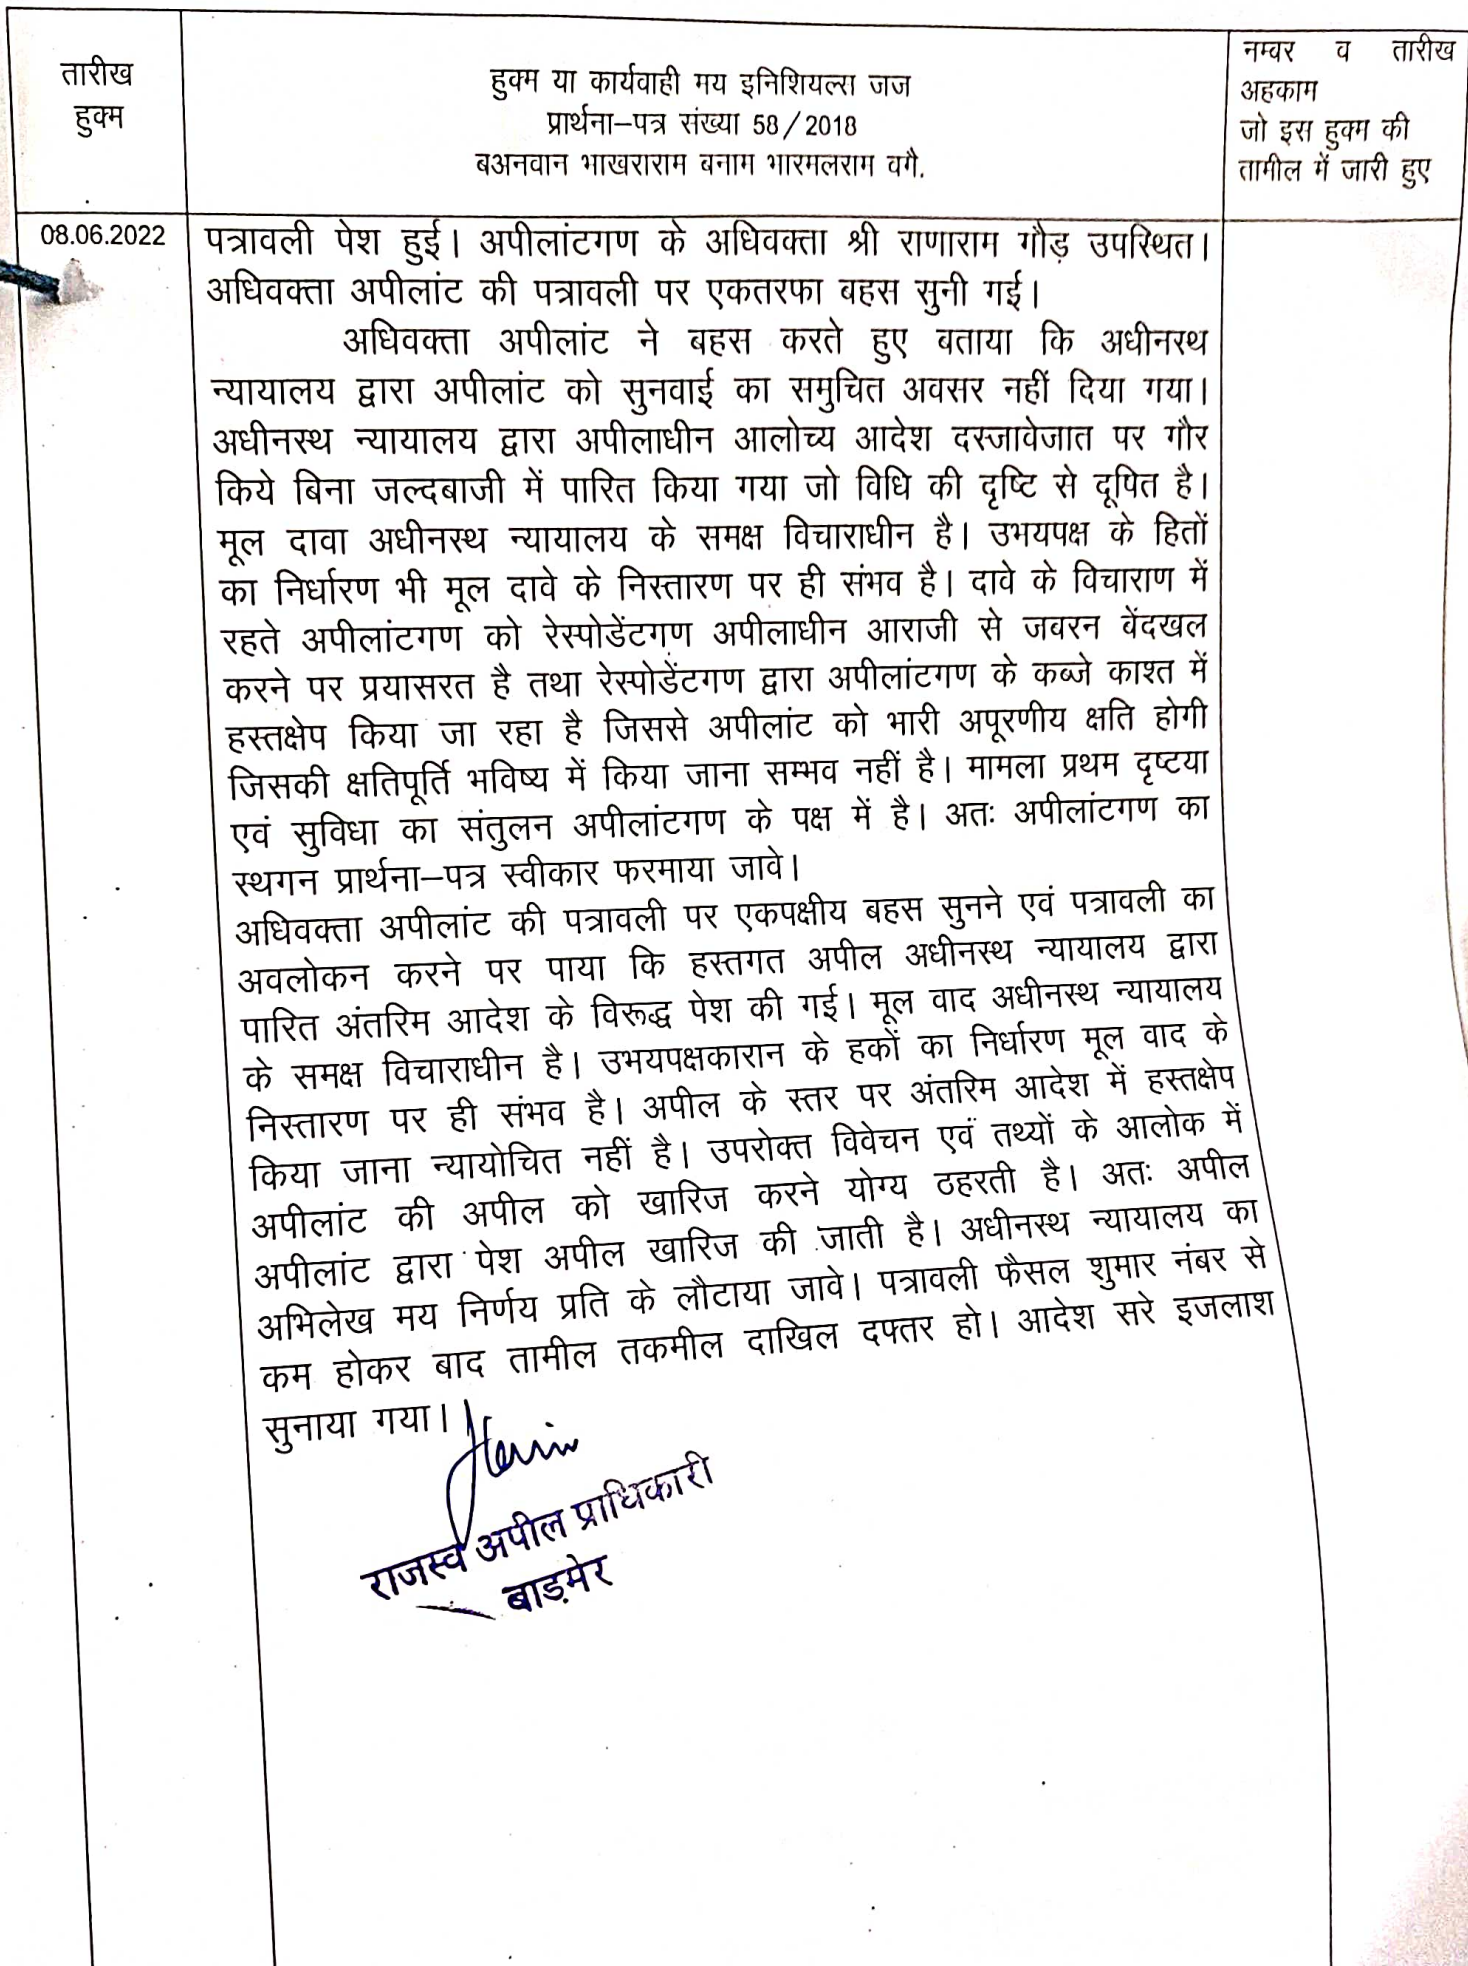 तारीख
हुक्म
हुक्म या कार्यवाही मय इनिशियल्स जज
प्रार्थना–पत्र संख्या 58/2018
बअनवान भाखराराम बनाम भारमलराम वगै.
नम्वर व तारीख
अहकाम
जो इस हुक्म की
तामील में जारी हुए
08.06.2022
पत्रावली पेश हुई। अपीलांटगण के अधिवक्ता श्री राणाराम गौड़ उपस्थित।
अधिवक्ता अपीलांट की पत्रावली पर एकतरफा बहस सुनी गई।
अधिवक्ता अपीलांट ने बहस करते हुए बताया कि अधीनस्थ
न्यायालय द्वारा अपीलांट को सुनवाई का समुचित अवसर नहीं दिया गया।
अधीनस्थ न्यायालय द्वारा अपीलाधीन आलोच्य आदेश दस्जावेजात पर गौर
किये बिना जल्दबाजी में पारित किया गया जो विधि की दृष्टि से दूषित है।
मूल दावा अधीनस्थ न्यायालय के समक्ष विचाराधीन है। उभयपक्ष के हितों
का निर्धारण भी मूल दावे के निस्तारण पर ही संभव है। दावे के विचाराण में
रहते अपीलांटगण को रेस्पोडेंटगण अपीलाधीन आराजी से जबरन वेंदखल
करने पर प्रयासरत है तथा रेस्पोडेंटगण द्वारा अपीलांटगण के कब्जे काश्त में
हस्तक्षेप किया जा रहा है जिससे अपीलांट को भारी अपूरणीय क्षति होगी
जिसकी क्षतिपूर्ति भविष्य में किया जाना सम्भव नहीं है। मामला प्रथम दृष्टया
एवं सुविधा का संतुलन अपीलांटगण के पक्ष में है। अतः अपीलांटगण का
स्थगन प्रार्थना–पत्र स्वीकार फरमाया जावे।
अधिवक्ता अपीलांट की पत्रावली पर एकपक्षीय बहस सुनने एवं पत्रावली का
अवलोकन करने पर पाया कि हस्तगत अपील अधीनस्थ न्यायालय द्वारा
पारित अंतरिम आदेश के विरूद्ध पेश की गई। मूल वाद अधीनस्थ न्यायालय
के समक्ष विचाराधीन है। उभयपक्षकारान के हकों का निर्धारण मूल वाद के
निस्तारण पर ही संभव है। अपील के स्तर पर अंतरिम आदेश में हस्तक्षेप
किया जाना न्यायोचित नहीं है। उपरोक्त विवेचन एवं तथ्यों के आलोक में
अपीलांट की अपील को खारिज करने योग्य ठहरती है। अतः अपील
अपीलांट द्वारा पेश अपील खारिज की जाती है। अधीनस्थ न्यायालय का
अभिलेख मय निर्णय प्रति के लौटाया जावे। पत्रावली फैसल शुमार नंबर से
कम होकर बाद तामील तकमील दाखिल दफ्तर हो। आदेश सरे इजलाश
सुनाया गया।
राजस्व अपील प्राधिकारी
बाड़मेर